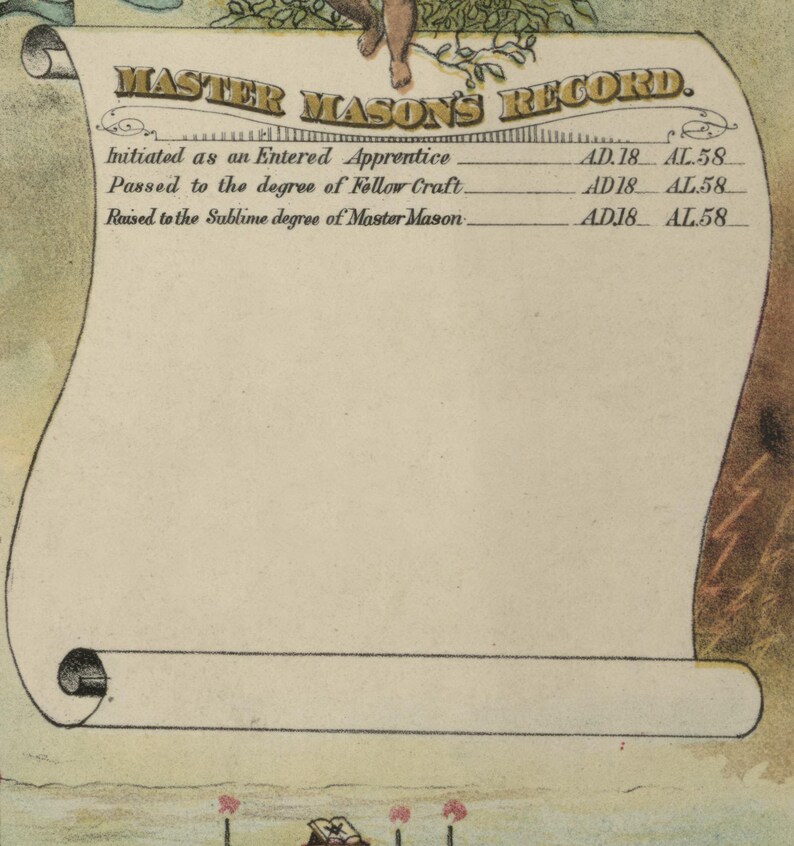 MASTER MASON'S RECORD.
Initiated as an Entered Apprentice ____ A.D. 18__ A.L. 58__
Passed to the degree of Fellow Craft ____ AD 18__ A.L. 58__
Raised to the Sublime degree of Master Mason ____ A.D. 18__ A.L. 58__